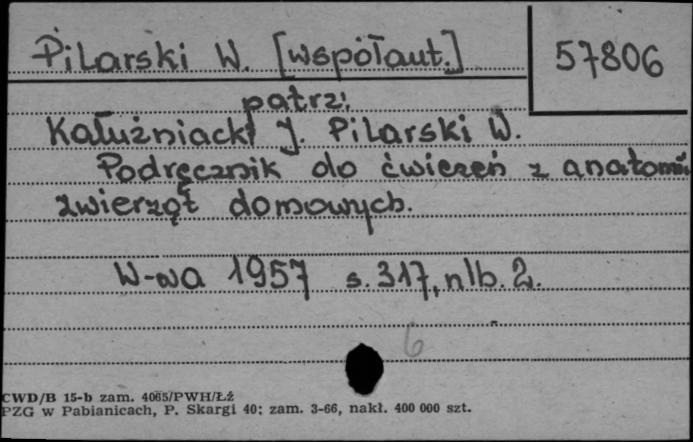 Pilarski W. [współaut.]
57806
patrz:
Kałużniacki J. Pilarski W.
Podręcznik do ćwiczeń z anatomii
zwierząt domowych.
W-wa 1957 s. 317, nlb. 2.
6
CWD/B 15-b zam. 4065/PWH/Łź
PZG w Pabianicach, P. Skargi 40; zam. 3-66, nakł. 400 000 szt.